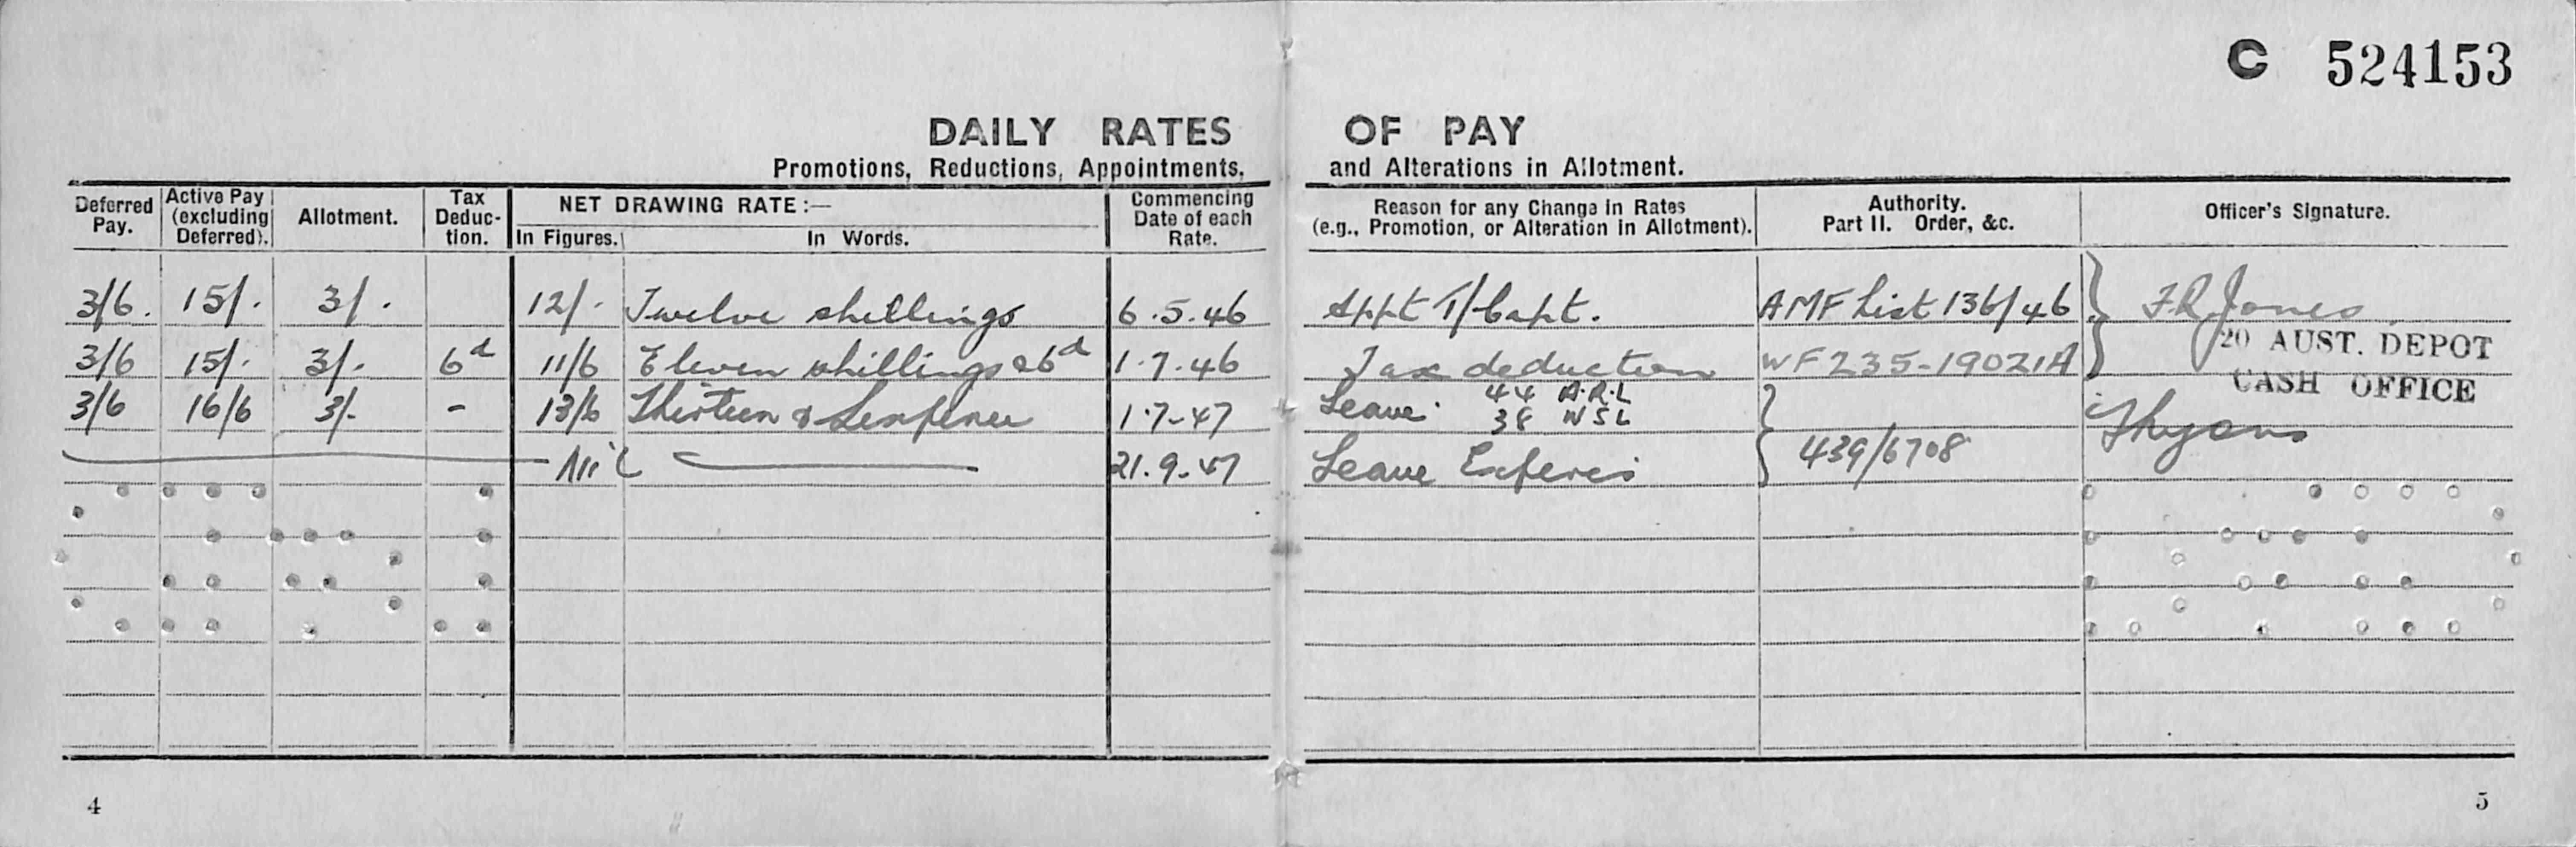 C 524153
DAILY RATES OF PAY
Promotions, Reductions, Appointments, and Alterations in Allotment.
Deferred Pay. Active Pay (excluding Deferred). Allotment. Tax Deduction. NET DRAWING RATE:— In Figures. In Words. Commencing Date of each Rate. Reason for any Change in Rates (e.g., Promotion, or Alteration in Allotment). Authority. Part II. Order, &c. Officer's Signature.
3/6. 15/. 3/. 12/. Twelve shillings 6.5.46 Appt T/Capt. AMF List 136/46 Jones
3/6 15/. 3/. 6d 11/6 Eleven shillings & 6d 1.7.46 Tax deduction WF235-19021A 20 AUST. DEPOT
CASH OFFICE
3/6 16/6 3/- - 13/6 Thirteen & Sixpence 1.7.47 Leave 44 A.R.L
38 WSL
Nil 21.9.47 Leave Expires 439/6708
4 5